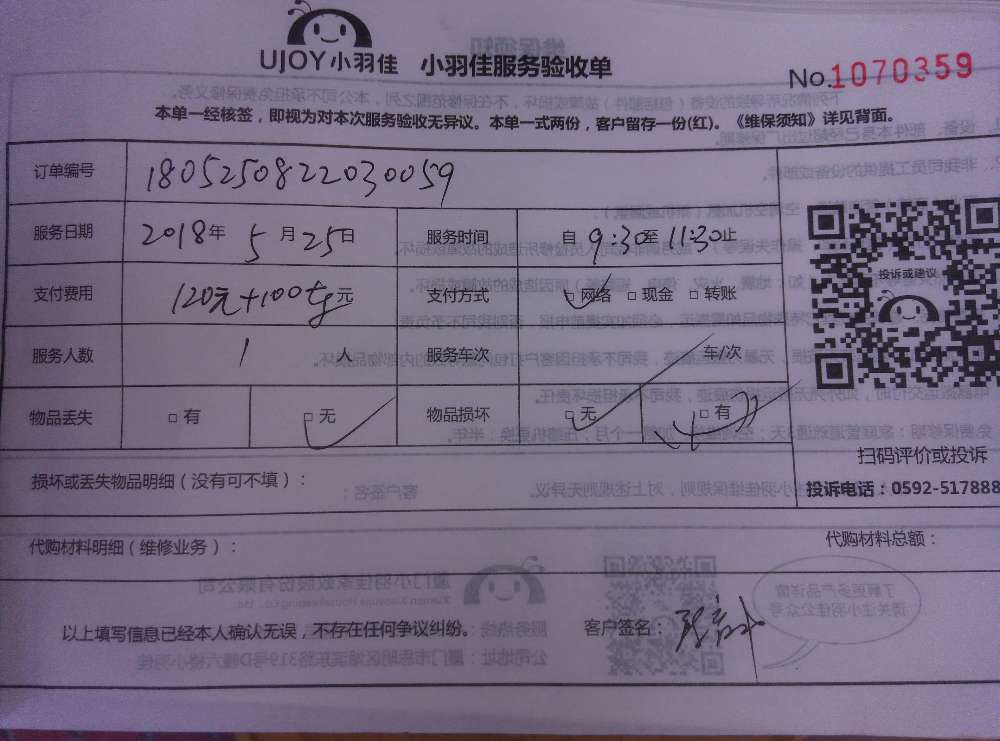 UJOY小羽佳 小羽佳服务验收单
No.1070359
本单一经核签，即视为对本次服务验收无异议。本单一式两份，客户留存一份(红)。《维保须知》详见背面。
订单编号 1805250822030059
服务日期 2018年 5月25日 服务时间 自 9:30至 11:30止
支付费用 120元+100 元 支付方式 □网络 □现金 □转账
服务人数 1 人 服务车次 车/次
物品丢失 □有 □无 物品损坏 □无 □有
投诉或建议
扫码评价或投诉
投诉电话：0592-517888
损坏或丢失物品明细（没有可不填）：
代购材料明细（维修业务）： 代购材料总额：
以上填写信息已经本人确认无误，不存在任何争议纠纷。 客户签名：